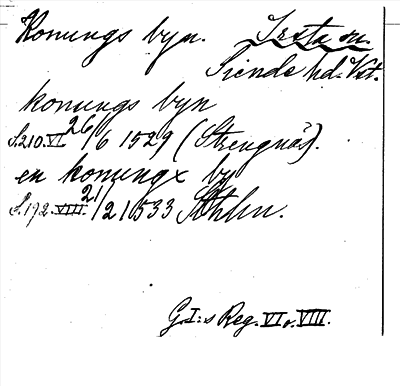 Konungs byn. Irsta sn.
Siende hd. Vst.
konungs byn
S.210.VI 26/6 1529 (Strengnäs).
en konungx by
S.192.VIII. 21/2 1533 Sthlm.
G.I:s Reg. VI o. VIII.